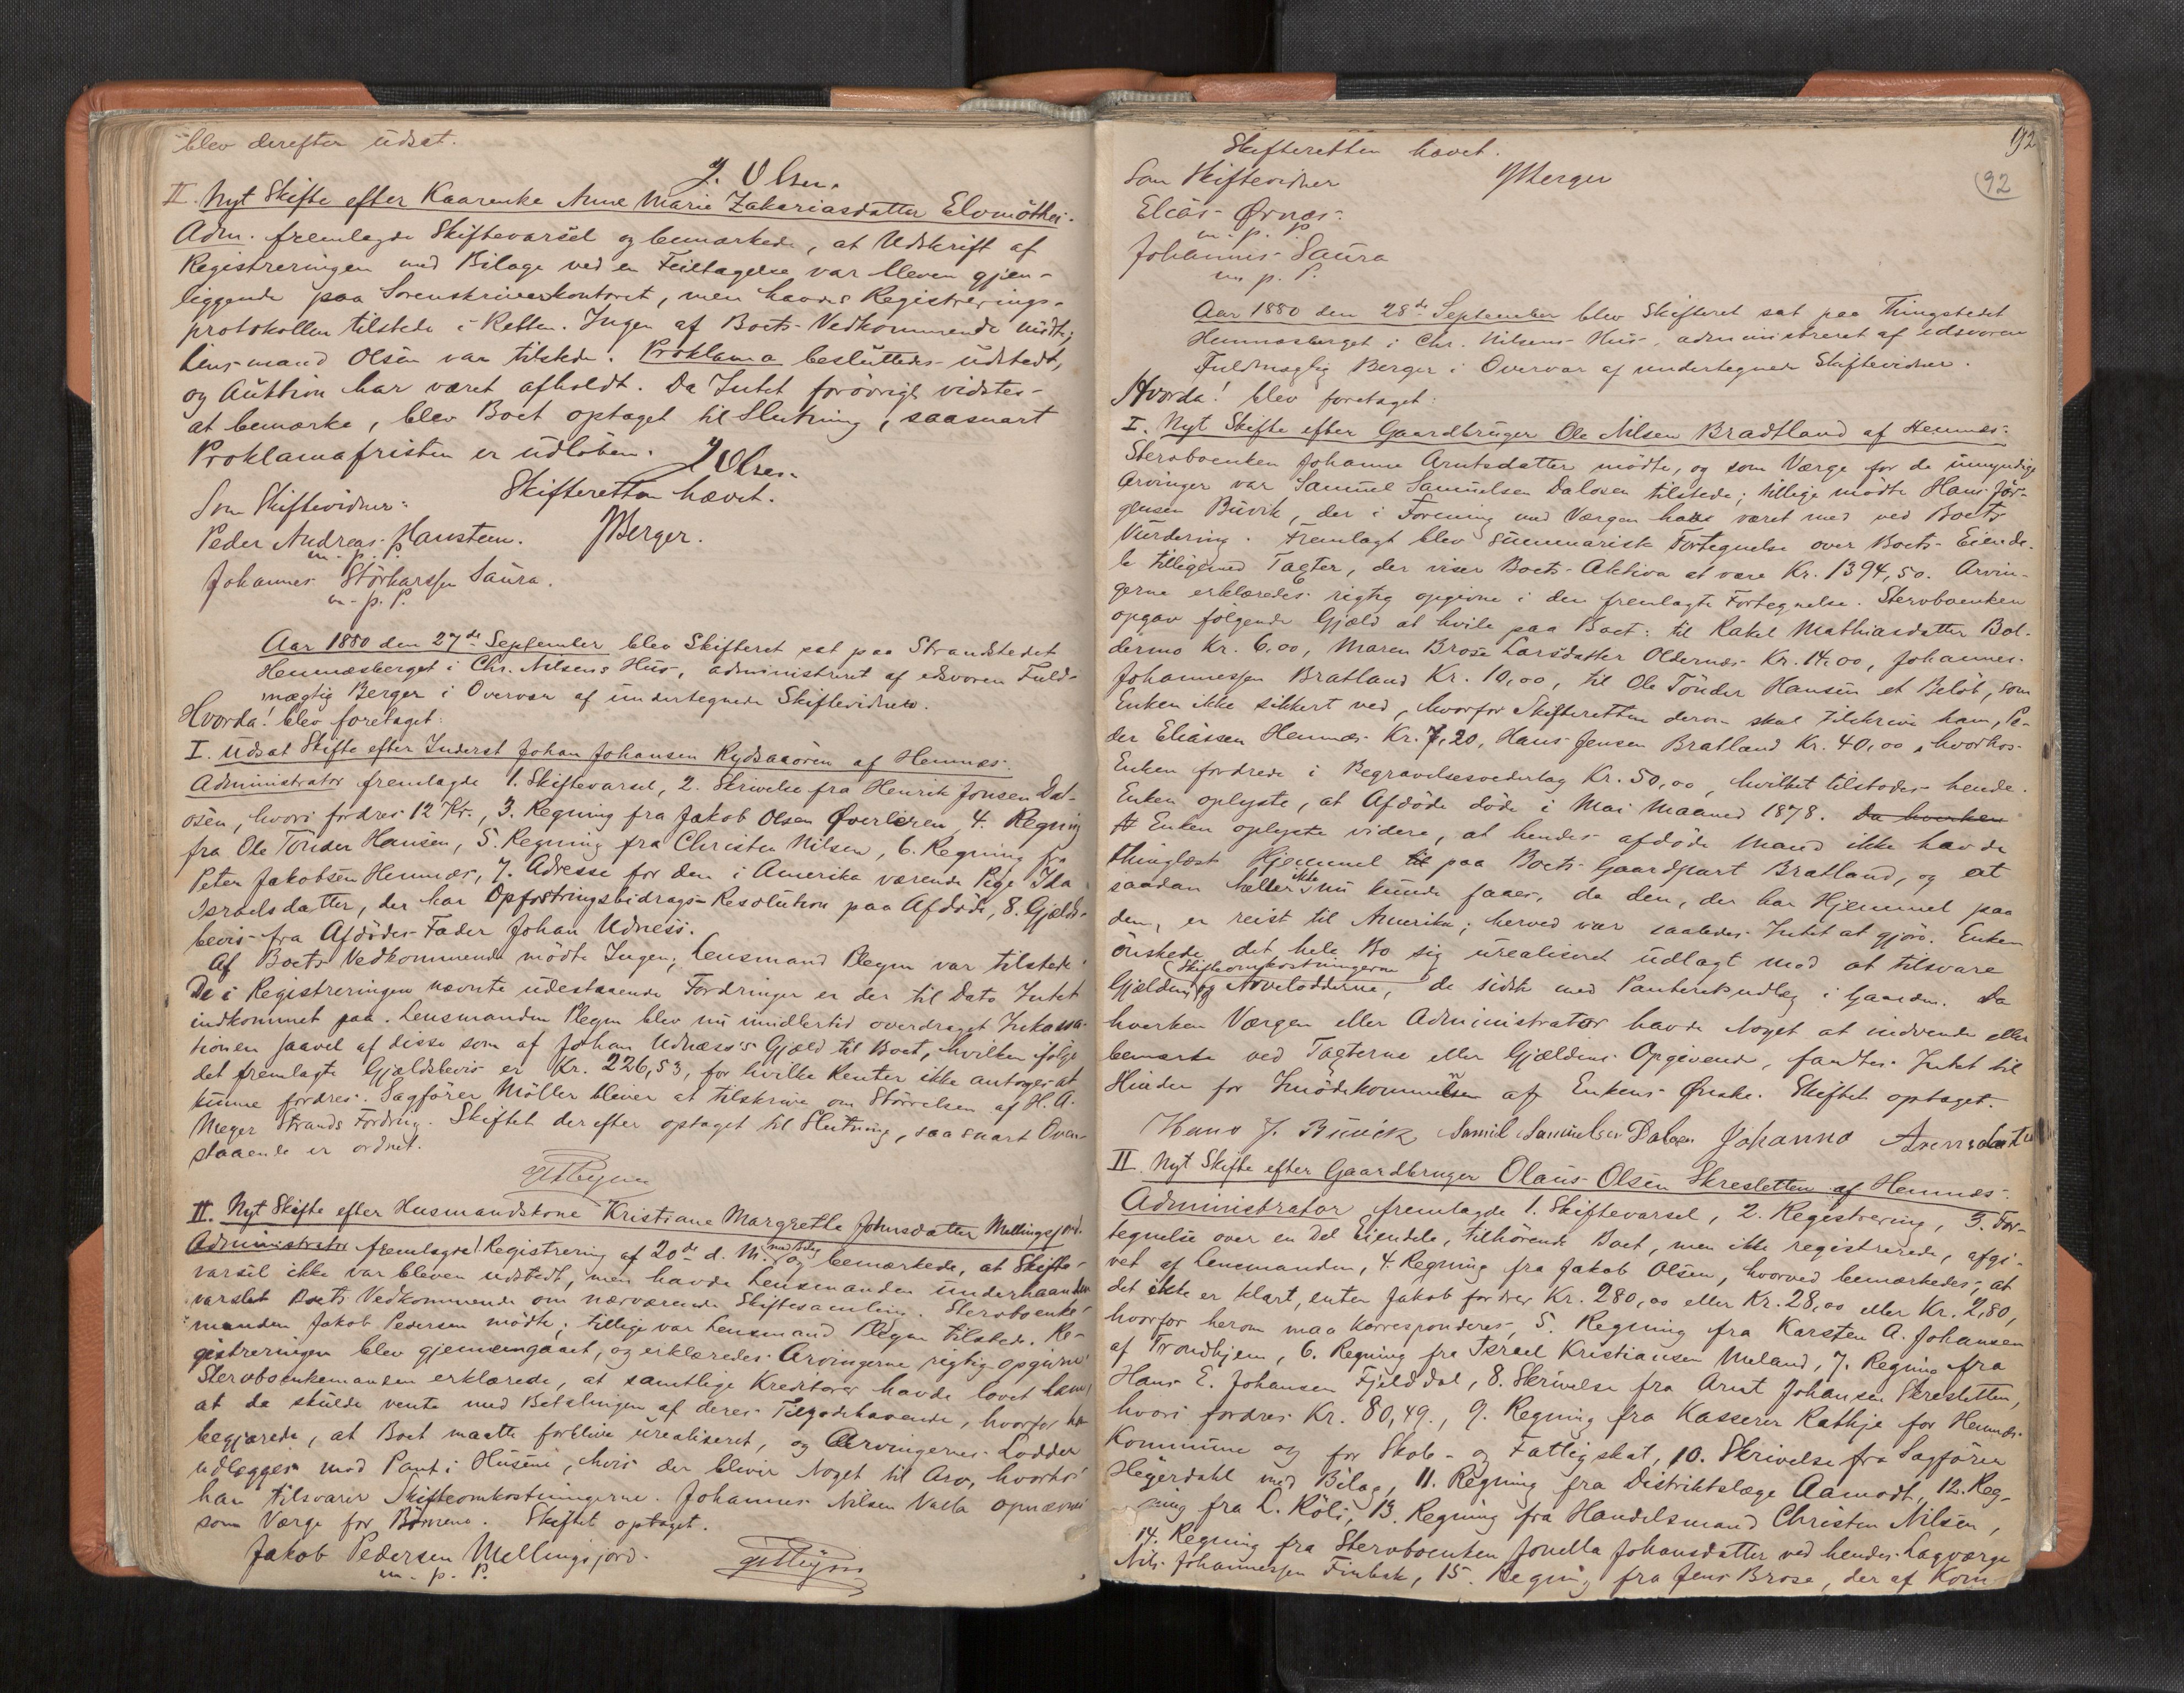 blev derefter udsat.
J. Olsen.
II. Nyt Skifte efter Kaarenke Anne Marie Zakariasdatter Elvmöthei.
Adm. fremlagde Skiftevarsel og bemærkede, at Udskrift af
Registreringen med Bilage ved en Feiltagelse var bleven gjen-
liggende paa Sorenskriverkontoret, men havdes Registrerings-
protokollen tilstede i Retten. Ingen af Boets Vedkommende mödte,
Lensmand Olsen var tilstede. Proklama besluttedes udstedt,
og Auktion har været afholdt. Da Intet forövrigt vidstes
at bemærke, blev Boet optaget til Slutning, saasnart
Proklamafristen er udlöben. J Olsen.
Skifteretten hævet.
Som Skiftevidner:
Peder Andreas Hanstem. JBerger.
m. p. P.
Johannes Störkarssen Saura.
m. p. P.
Aar 1880 den 27de September blev Skifteret sat paa Strandstedet
Hemnæsberget i Chr. Nilsens Hus, administreret af edsvoren Fuld-
mægtig Berger i Overvær af undertegnede Skiftevidner.
Hvorda! blev foretaget:
I. Udsat Skifte efter Inderst Johan Johansen Rydsaaören af Hemnæs.
Administrator fremlagde 1. Skiftevarsel, 2. Skrivelse fra Henrik Jonsen Dal-
osen, hvori fordres 12 Kr., 3. Regning fra Jakob Olsen Överleren, 4. Regning
fra Ole Tönder Hansen, 5. Regning fra Christen Nilsen, 6. Regning fra
Peter Jakobsen Hemnæs, 7. Adresse for den i Amerika værende Pige Ida
Israelsdatter, der har Opfostringsbidrags-Resolution paa Afdöde, 8. Gjælds-
bevis fra Afdödes Fader Johan Udness.
Af Boets Vedkommende mödte Ingen; Lensmand Plegen var tilstede.
De i Registreringen nævnte udestaaende Fordringer er der til Dato Intet
indkommet paa. Lensmanden Plegen blev nu imidlertid overdraget Inkassa-
tionen saavel af disse som af Johan Udnæss's Gjæld til Boet, hvilken ifölge
det fremlagte Gjældsbevis er Kr. 226,53, for hvilke Renter ikke antages at
kunne fordres. Sagförer Möller bliver at tilskrive om Störrelsen af H. A.
Meyer Strands Fordring. Skiftet derefter optaget til Slutning, saasnart Oven-
staaende er ordnet.
II. Nyt Skifte efter Husmandskone Kristiane Margrethe Johnsdatter Mellingsjord.
Administrator fremlagde 1 Registrering af 20de d. M. med Bilag og bemærkede, at Skifte-
varsel ikke var bleven udstedt, men havde Lensmanden underhaanden
varslet Boets Vedkommende om nærværende Skiftesamling. Stervboenke-
manden Jakob Pedersen mödte; tillige var Lensmand Plegen tilstede. Re-
gistreringen blev gjennemgaaet, og erklæredes Arvingerne rigtig opgivne.
Stervboenkemanden erklærede, at samtlige Kreditorer havde lovet ham,
at de skulde vente med Betalingen af deres Tilgodehavende, hvorfor han
begjærede, at Boet maatte forblive urealiseret, og Arvingernes Lodder
udlægges mod Pant i Husene, hvis der bliver Noget til Arv, hvorhos
han tilsvarer Skifteomkostningerne. Johannes Nilsen Valla opnævnes
som Værge for Börnene. Skiftet optaget.
Jakob Pedersen Mellingsjord.
m. p. P.
92
(92
Skifteretten hævet.
Som Skiftevidner JBerger
Elias Ørnæs.
m. p. P.
Johannis Saura
m. p. P.
Aar 1880 den 28de September blev Skifteret sat paa Thingstedet
Hemnæsberget i Chr. Nilsens Hus, administreret af edsvoren
Fuldmægtig Berger i Overvær af undertegnede Skiftevidner.
Hvorda! blev foretaget:
I. Nyt Skifte efter Gaardbruger Ole Nilsen Bradtland af Hemnæs.
Stervboenken Johanna Arntsdatter mödte, og som Værge for de umyndige
Arvinger var Samuel Samuelsen Dalosen tilstede; tillige mödte Hans Jör-
gensen Buvik, der i Forening med Værgen har været med ved Boets
Vurdering. Fremlagt blev summarisk Fortegnelse over Boets Eiende-
le tilligemed Taxter, der viser Boets Aktiva at være Kr. 1394,50. Arvin-
gerne erklæredes rigtig opgivne i den fremlagte Fortegnelse. Stervboenken
opgav fölgende Gjæld at hvile paa Boet: til Rakel Mathiasdatter Bol-
dermo Kr. 6,00, Maren Brose Larsdatter Oldernæs Kr. 14,00, Johannes
Johannessen Bratland Kr. 10,00, til Ole Tönder Hansen et Belöb, som
Enken ikke sikkert ved, hvorfor Skifteretten derom skal tilskrive ham, Pe-
der Eliassen Hemnæs Kr. 7,20, Hans Jensen Bratland Kr. 40,00, hvorhos
Enken fordrede i Begravelsesvederlag Kr. 50,00, hvilket tilstodes hende.
Enken oplyste, at Afdöde döde i Mai Maaned 1878. Da hverken
At Enken oplyste videre, at hendes afdöde Mand ikke havde
thinglæst Hjemmel til paa Boets Gaardpart Bratland, og at
saadan heller ikke nu kunde faaes, da den, der har Hjemmel paa
den, er reist til Amerika; herved var saaledes Intet at gjöre. Enken
önskede det hele Bo sig urealiseret udlagt mod at tilsvare
Gjælden, Skifteomkostningerne og Arvelodderne, de sidste med Panteretsudlæg i Gaarden. Da
hverken Værgen eller Administrator havde Noget at indvende eller
bemærke ved Taxterne eller Gjældens Opgivende, fandtes Intet til
Hinder for Imödekommelsen af Enkens Ønske. Skiftet optaget.
Hans J. Buvick Samil Samuelsen Dalosen Johanna Arensdatter
II. Nyt Skifte efter Gaardbruger Olaus Olsen Skresletten af Hemnæs.
Administrator fremlagde 1. Skiftevarsel, 2. Registrering, 3. For-
tegnelse over en Del Eiendele, tilhörende Boet, men ikke registrerede, afgi-
vet af Lensmanden, 4. Regning fra Jakob Olsen, hvorved bemærkedes, at
det ikke er klart, enten Jakob fordrer Kr. 280,00 eller Kr. 28,00 eller Kr. 2,80,
hvorfor herom maa korresponderes, 5. Regning fra Karsten A. Johansen
af Trondhjem, 6. Regning fra Israel Kristiansen Meland, 7. Regning fra
Hans E. Johansen Fjelddal, 8. Skrivelse fra Arnt Johansen Skresletten,
hvori fordres Kr. 80,49., 9. Regning fra Kasserer Rathje for Hemnæs
Kommune og for Skole- og Fattigskat, 10. Skrivelse fra Sagförer
Hegerdahl med Bilag, 11. Regning fra Distriktslæge Aamodt, 12. Reg-
ning fra L. Röli, 13. Regning fra Handelsmand Christen Nilsen,
14. Regning fra Stervboenken Jonella Johansdatter ved hendes Lagværge
Nils Johannessen Finbak, 15. Regning fra Jens Brose, der af Kom-